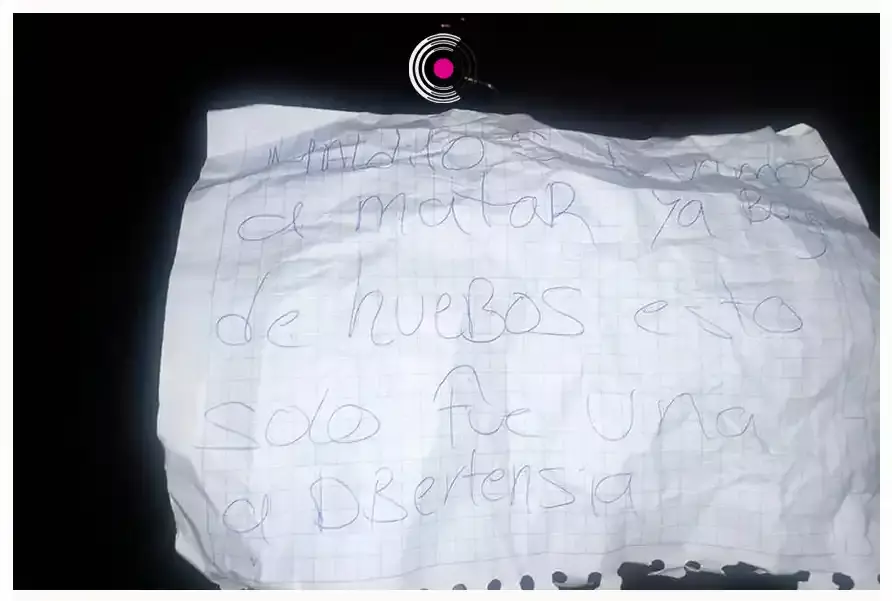 MALDITO vamos
a mataR ya Bas
de hueBos esto
solo fue una
a DBertensia